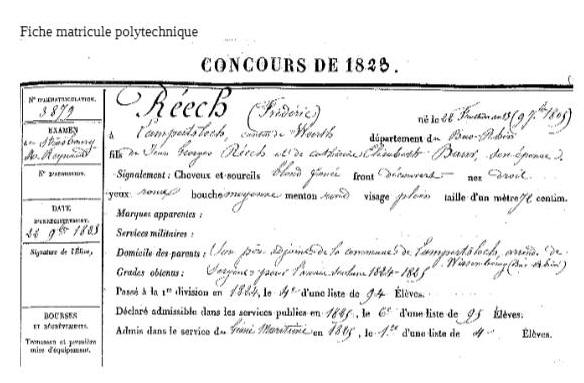 Fiche matricule polytechnique
CONCOURS DE 1823.
N° D'IMMATRICULATION.
3879
EXAMEN
de Strasbourg
M. Reynaud
DATE
D'ENREGISTREMENT.
22 9bre 1823
Signature de l'Élève,
BOURSES
ET DÉGRÈVEMENTS.
Trousseau et première
mise d'équipement.
Réech (Fréderic)
né le 22 Fructidor an 13 (9 7bre 1805)
à Lampertsloch, canton de Woerth département du Bas-Rhin
fils de Jean Georges Réech et de Catherine Elisabeth Baur, son épouse
Signalement : Cheveux et sourcils blond foncé front découvert nez droit
yeux roux bouche moyenne menton rond visage plein taille d'un mètre 71 centim.
Marques apparentes :
Services militaires :
Domicile des parents : Son père adjoint de la commune de Lampertsloch, arrond. de Wissembourg (Bas-Rhin)
Grades obtenus : Sergent pour l'année scolaire 1824-1825
Passé à la 1re division en 1824, le 4e d'une liste de 94 Élèves.
Déclaré admissible dans les services publics en 1825, le 6e d'une liste de 95 Élèves.
Admis dans le service du Génie Maritime en 1825, le 1er d'une liste de 4 Élèves.